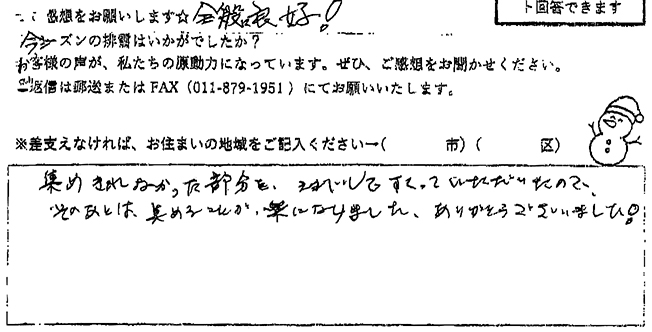 ト回答できます
ご感想をお願いします☆ 全般良好！
今シーズンの排雪はいかがでしたか？
お客様の声が、私たちの原動力になっています。ぜひ、ご感想をお聞かせください。
ご返信は郵送またはFAX（011-879-1951）にてお願いいたします。
※差支えなければ、お住まいの地域をご記入ください→（　　　市）（　　　区）
集めきれなかった部分を、 すくっていただいたので、
そのあとは、集めることが、楽になりました、ありがとうございました！